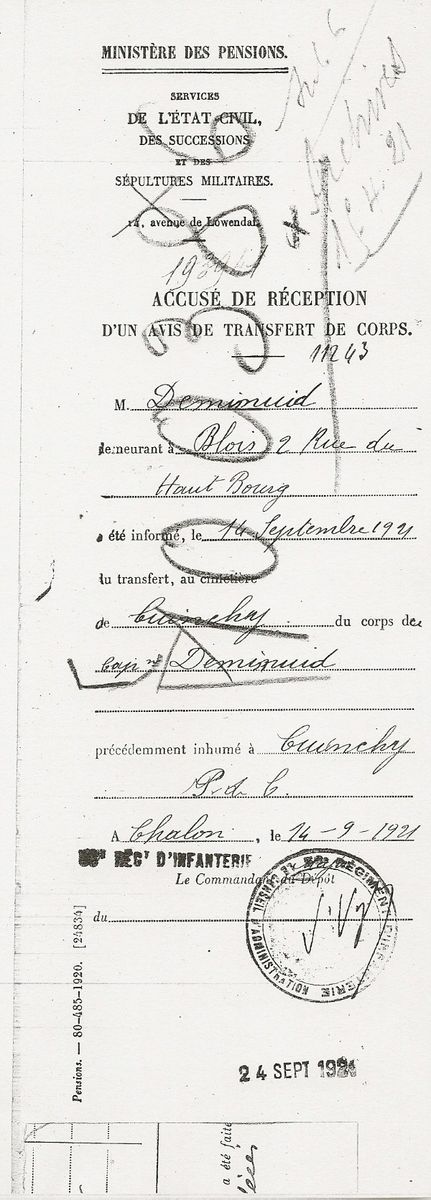 MINISTÈRE DES PENSIONS.
SERVICES
DE L'ÉTAT-CIVIL,
DES SUCCESSIONS
ET DES
SÉPULTURES MILITAIRES.
14, avenue de Lowendal.
Archives
ACCUSÉ DE RÉCEPTION
D'UN AVIS DE TRANSFERT DE CORPS.
11243
M. Deminuid
demeurant à Blois 2 Rue du
Haut Bourg
a été informé, le 14 Septembre 1921
du transfert, au cimetière
de Cuinchy du corps de
Deminuid
précédemment inhumé à Cuinchy
P. d. C.
A Chalon, le 14-9-1921
RÉGT D'INFANTERIE
Le Commandant du Dépôt
du
RÉGIMENT D'INFANTERIE
CONSEIL D'ADMINISTRATION
24 SEPT 1921
Pensions. — 80-485-1920. [24834]
a été faite